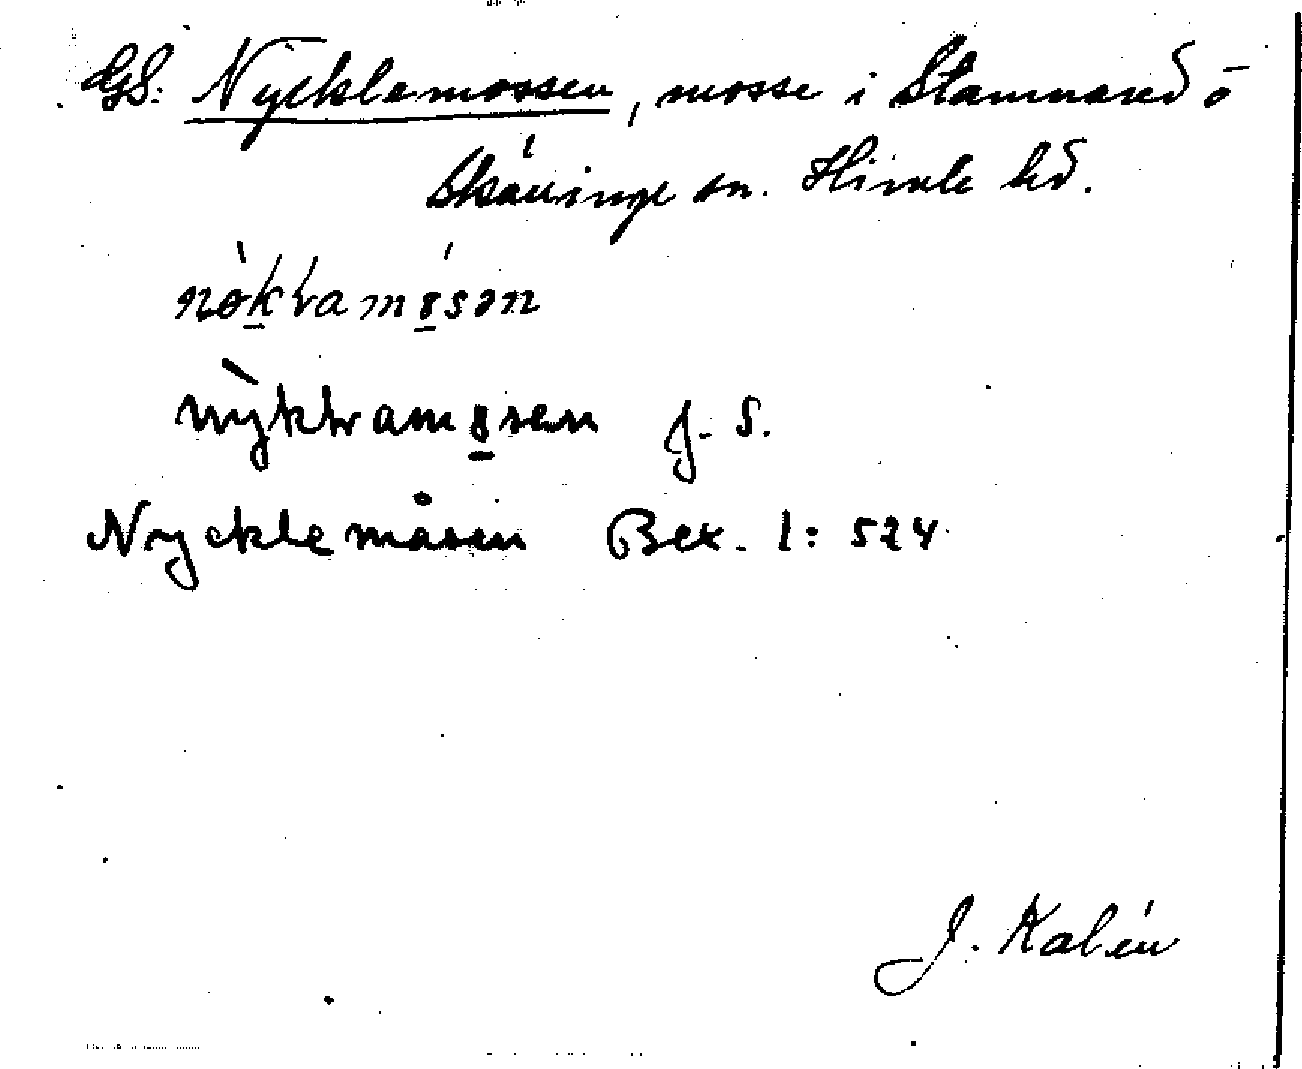 GS: Nycklemossen, mosse i Stamnared ö
Skällinge sn. Himle hd.
nøkkramøsən
nykkramøsen J. S.
Nycklemåsen Bex. 1: 524
J. Kalén